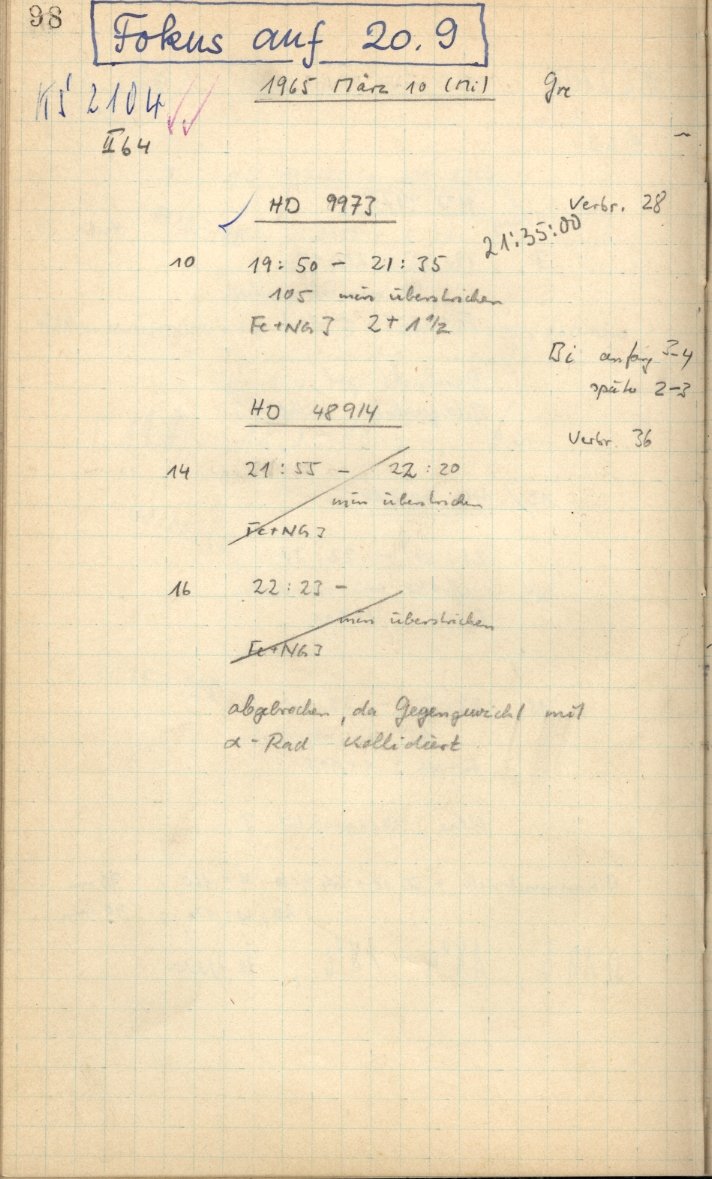 98
Fokus auf 20.9
1965 März 10 (Mi) Gre
KS 2104
II 64
HD 9973 Verbr. 28
21:35:00
10 19:50 - 21:35
105 min überstrichen
Fe+NG3 2+1 1/2
Bi anfang 3-4
später 2-3
HD 48914
Verbr. 36
14 21:55 - 22:20
min überstrichen
Fe+NG3
16 22:23 -
min überstrichen
Fe+NG3
abgebrochen, da Gegengewicht mit
α-Rad kollidiert